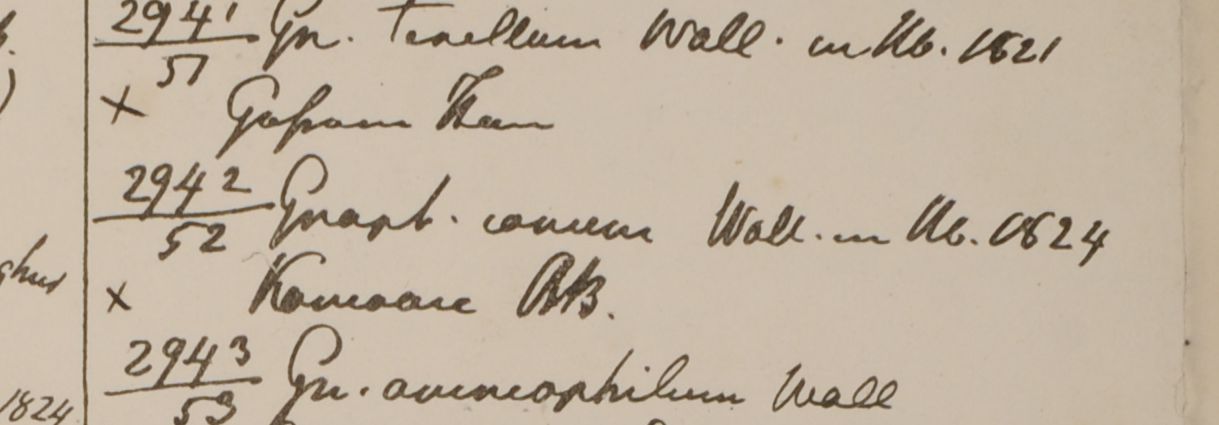 2941/51 Gn. tenellum Wall. in Hb. 1821
× Gossain Than
2942/52 Gnaph. canum Wall. in Hb. 1824
× Kamaon RB.
2943/53 Gn. ammophilum Wall
1824